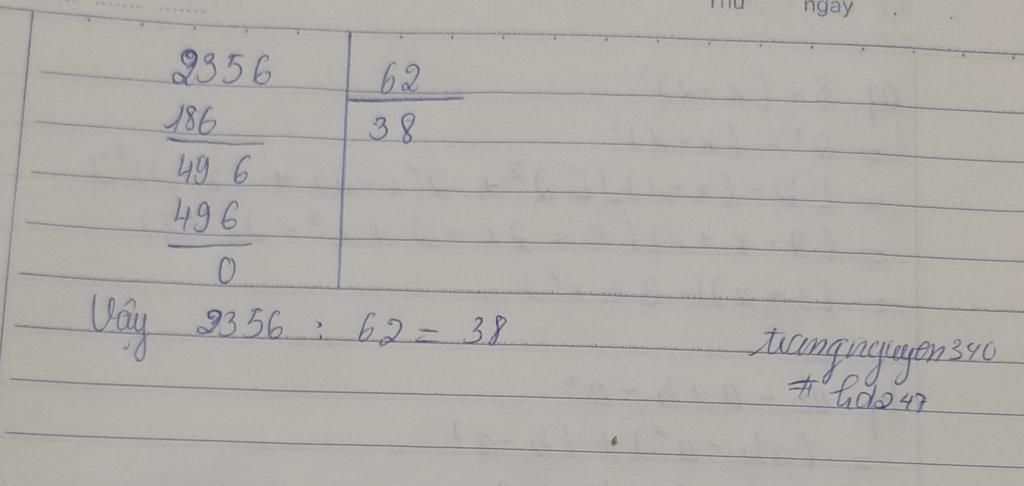 Thứ ngày
2356 62
186 38
49 6
496
0
Vậy 2356 : 62 = 38
trangnguyen340
# hd247